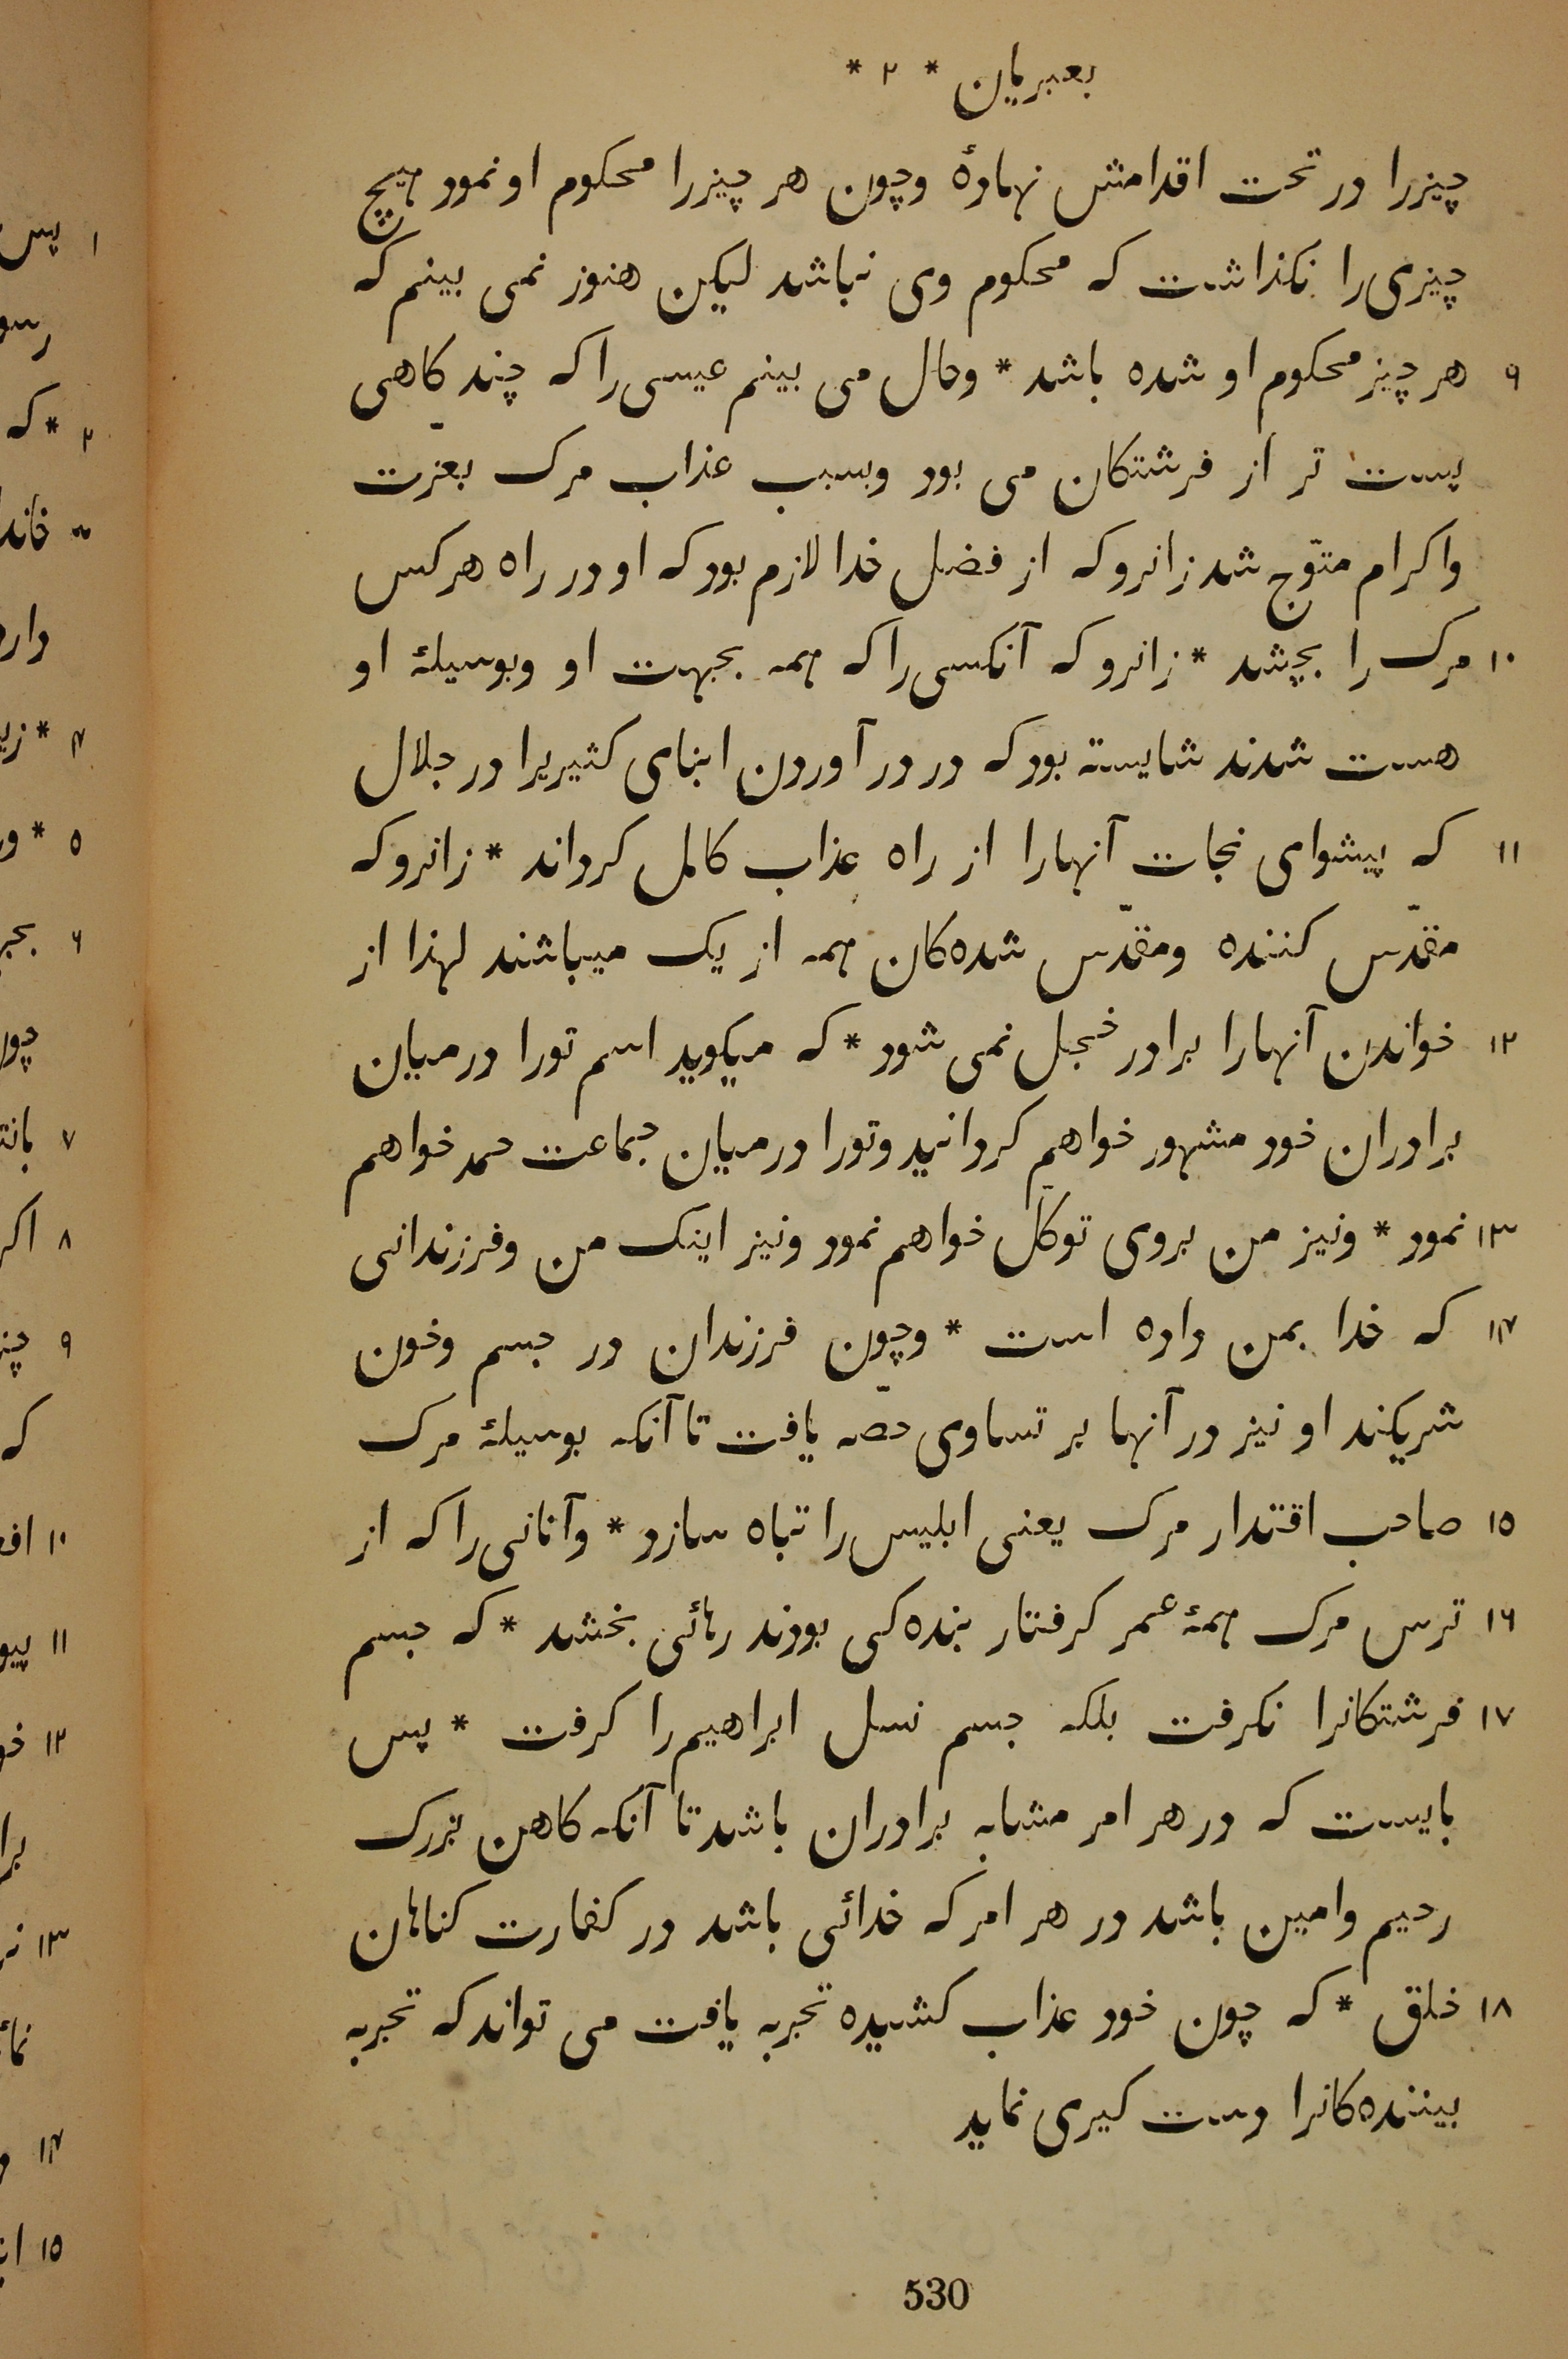 بعبریان * ۲ *
چیزرا در تحت اقدامش نهادهٔ وچون هر چیزرا محکوم او نمود هیچ
چیزی را نکذاشت که محکوم وی نباشد لیکن هنوز نمی بینم که
۹ هر چیز محکوم او شده باشد * وحال می بینم عیسی را که چند کاهی
پست تر از فرشتکان می بود وبسبب عذاب مرک بعزّت
واکرام متوّج شد زانرو که از فضل خدا لازم بود که او در راه هر کس
۱۰ مرک را بچشد * زانرو که آنکسی را که همه بجهت او وبوسیلهٔ او
هست شدند شایسته بود که در در آوردن ابنای کثیریرا در جلال
۱۱ که پیشوای نجات آنهارا از راه عذاب کامل کرداند * زانرو که
مقدّس کننده ومقدّس شده‌کان همه از یک میباشند لهذا از
۱۲ خواندن آنهارا برادر خجل نمی شود * که میکوید اسم تورا در میان
برادران خود مشهور خواهم کردانید وتورا در میان جماعت حمد خواهم
۱۳ نمود * ونیز من بروی توکّل خواهم نمود ونیز اینک من وفرزندانی
۱۴ که خدا بمن داده است * وچون فرزندان در جسم وخون
شریکند او نیز در آنها بر تساوی حصّه یافت تا آنکه بوسیلهٔ مرک
۱۵ صاحب اقتدار مرک یعنی ابلیس را تباه سازد * وآنانی را که از
۱۶ ترس مرک همهٔ عمر کرفتار بنده‌کی بودند رهائی بخشد * که جسم
۱۷ فرشتکانرا نکرفت بلکه جسم نسل ابراهیم را کرفت * پس
بایست که در هر امر مشابه برادران باشد تا آنکه کاهن بزرک
رحیم وامین باشد در هر امر که خدائی باشد در کفارت کناهان
۱۸ خلق * که چون خود عذاب کشیده تجربه یافت می تواند که تجربه
بیننده‌کانرا دست کیری نماید
530